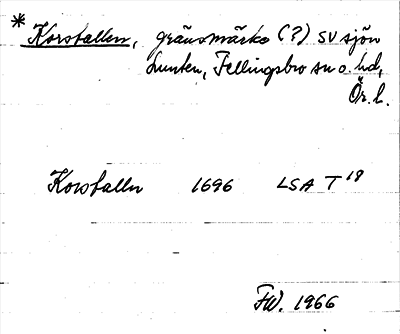 * Korstallen, gränsmärke (?) SV sjön
Lunten, Fellingsbro sn o. hd,
Ör. l.
Korstalln 1696 LSA T 18
FW. 1966